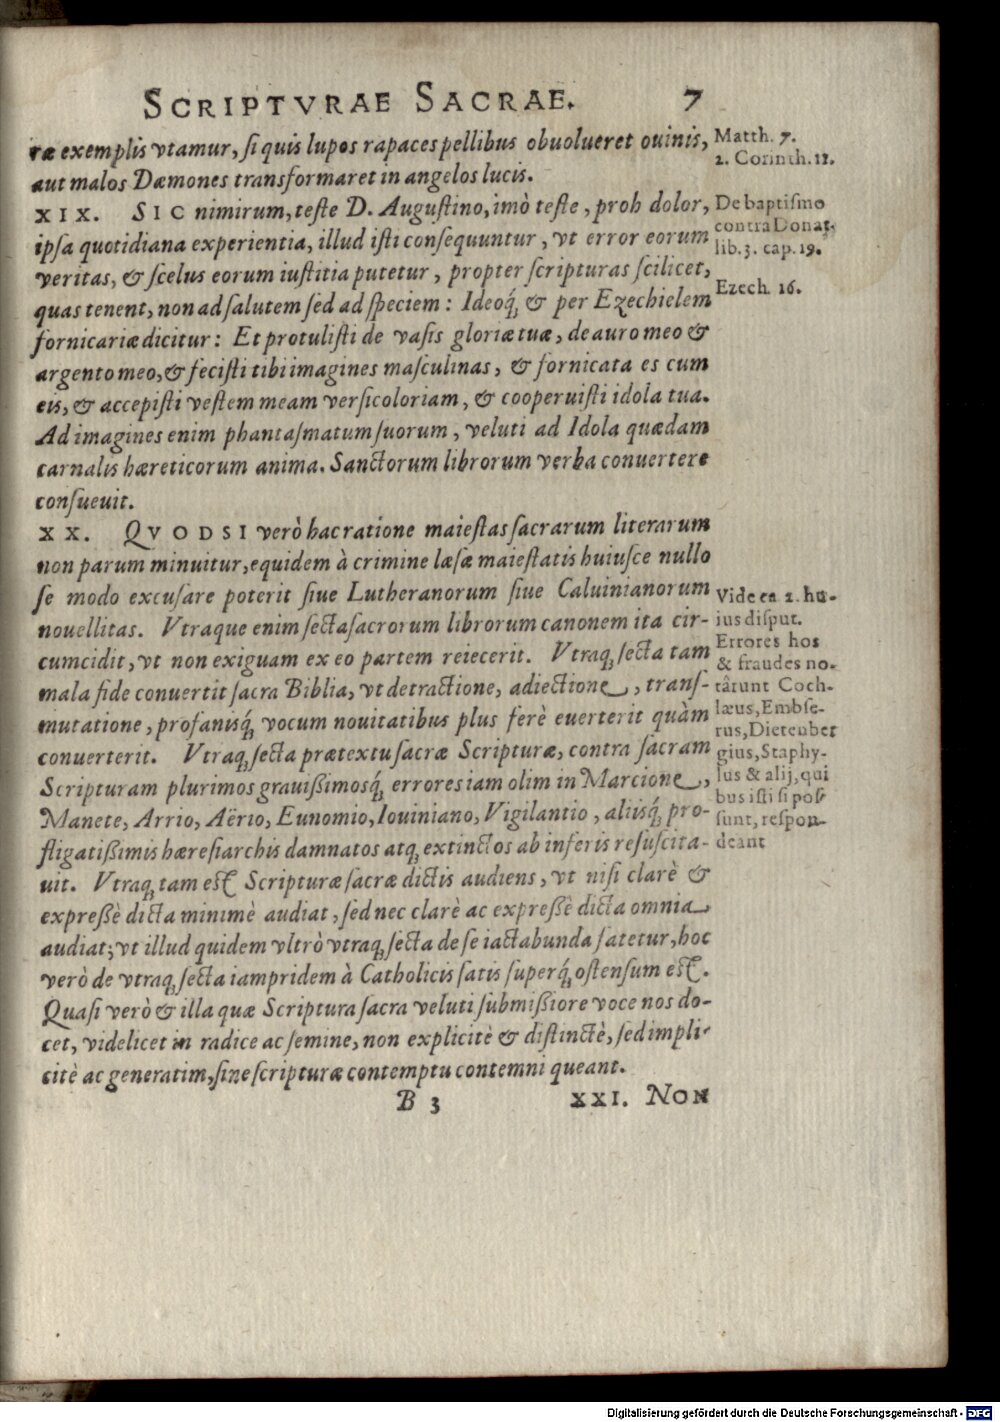 SCRIPTVRAE SACRAE. 7
ræ exemplis vtamur, ſi quis lupos rapaces pellibus obuolueret ouinis,
aut malos Dæmones transformaret in angelos lucis.
Matth. 7.
2. Corinth. 11.
XIX. SIC nimirum, teſte D. Auguſtino, imò teſte, proh dolor,
ipſa quotidiana experientia, illud iſti conſequuntur, vt error eorum
veritas, & ſcelus eorum iuſtitia putetur, propter ſcripturas ſcilicet,
quas tenent, non ad ſalutem ſed ad ſpeciem: Ideoq́; & per Ezechielem
fornicariæ dicitur: Et protuliſti de vaſis gloriæ tuæ, de auro meo &
argento meo, & feciſti tibi imagines maſculinas, & fornicata es cum
eis, & accepiſti veſtem meam verſicoloriam, & cooperuiſti idola tua.
Ad imagines enim phantaſmatum ſuorum, veluti ad Idola quædam
carnalis hæreticorum anima. Sanctorum librorum verba conuertere
conſueuit.
De baptiſmo
contra Donat.
lib. 3. cap. 19.
Ezech. 16.
XX. QVODSI verò hac ratione maieſtas ſacrarum literarum
non parum minuitur, equidem à crimine læſæ maieſtatis huiuſce nullo
ſe modo excuſare poterit ſiue Lutheranorum ſiue Caluinianorum
nouellitas. Vtraque enim ſecta ſacrorum librorum canonem ita cir-
cumcidit, vt non exiguam ex eo partem reiecerit. Vtraq; ſecta tam
mala fide conuertit ſacra Biblia, vt detractione, adiectione, tranſ-
mutatione, profanisq́; vocum nouitatibus plus ferè euerterit quàm
conuerterit. Vtraq; ſecta prætextu ſacræ Scripturæ, contra ſacram
Scripturam plurimos grauißimosq́; errores iam olim in Marcione,
Manete, Arrio, Aërio, Eunomio, Iouiniano, Vigilantio, aliisq́; pro-
fligatißimis hæreſiarchis damnatos atq; extinctos ab inferis reſuſcita-
uit. Vtraq; tam eſt Scripturæ ſacræ dictis audiens, vt niſi clarè &
expreßè dicta minimè audiat, ſed nec clarè ac expreßè dicta omnia
audiat; vt illud quidem vltrò vtraq; ſecta de ſe iactabunda fatetur, hoc
verò de vtraq; ſecta iampridem à Catholicis ſatis ſuperq́; oſtenſum eſt.
Quaſi verò & illa quæ Scriptura ſacra veluti ſubmißiore voce nos do-
cet, videlicet in radice ac ſemine, non explicitè & diſtinctè, ſed impli-
citè ac generatim, ſine ſcripturæ contemptu contemni queant.
Vide ea 2. hu-
ius diſput.
Errores hos
& fraudes no-
târunt Coch-
læus, Embſe-
rus, Dietenber
gius, Staphy-
lus & alij, qui
bus iſti ſi poſ-
ſunt, reſpon-
deant
B 3 XXI. NON
Digitalisierung gefördert durch die Deutsche Forschungsgemeinschaft - DFG